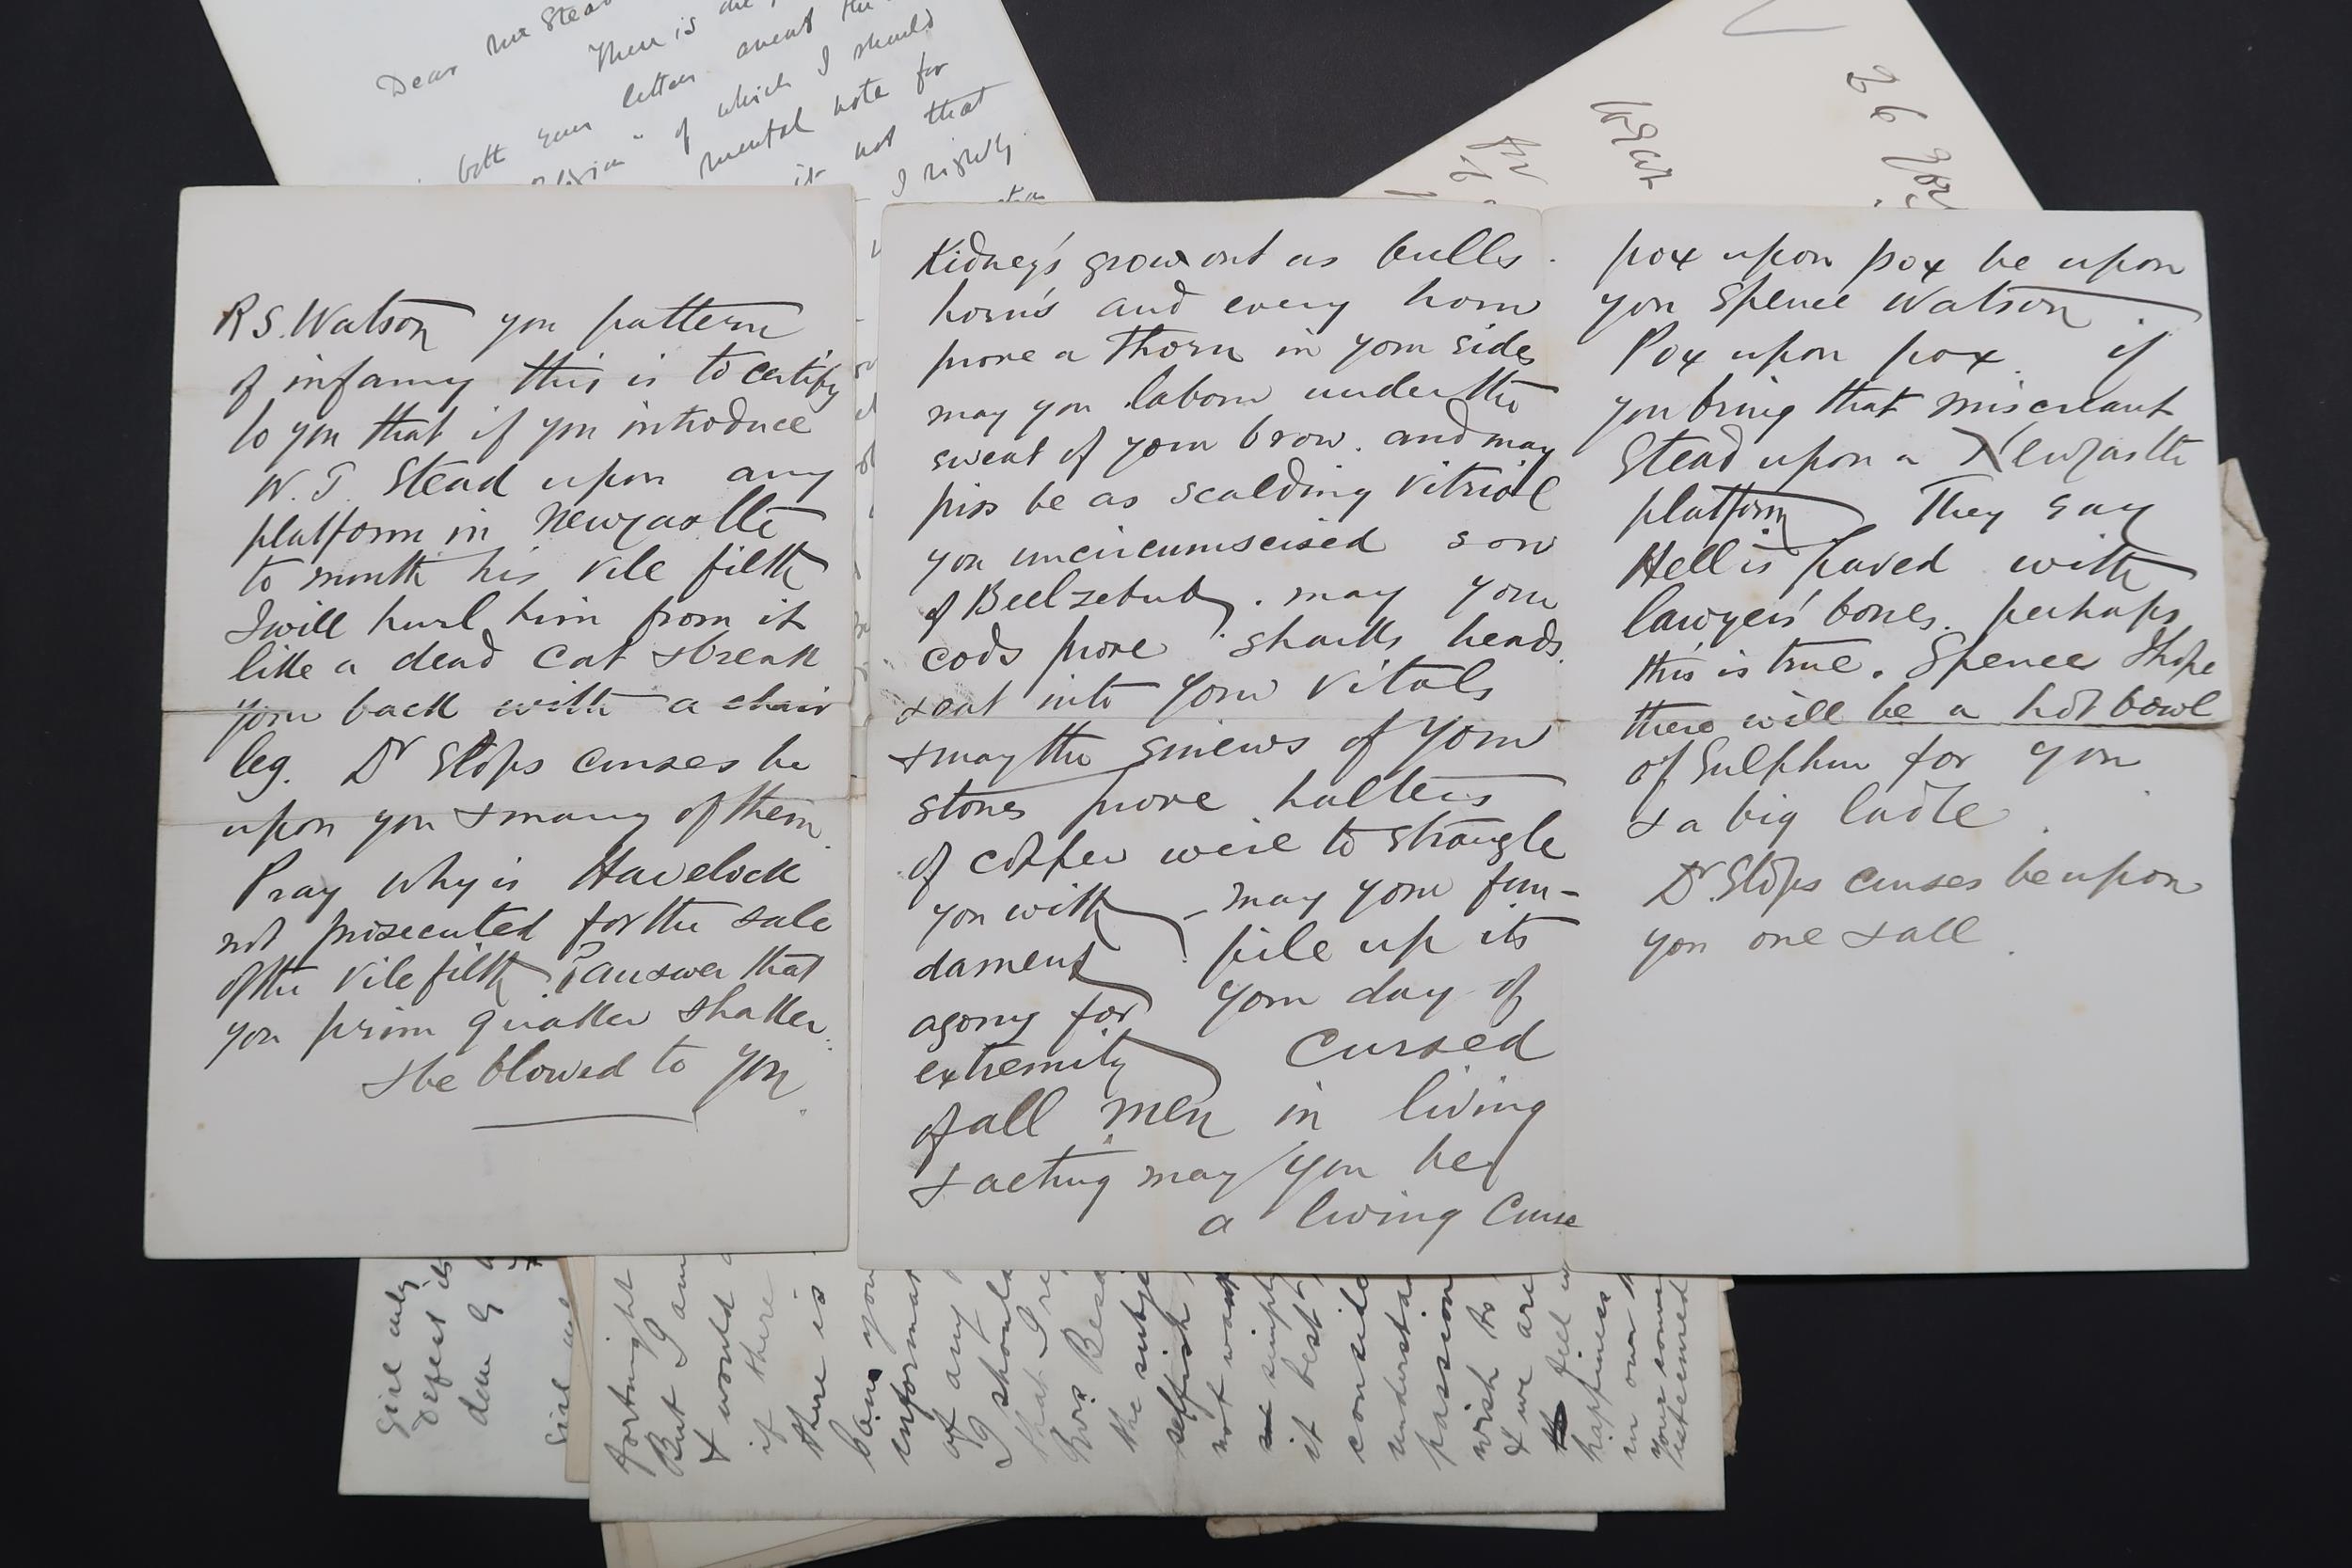 Dear Mr Stead
There is
both your letter anent the
of which I should
mental note for
it not that
I rightly
R S. Watson you pattern
of infamy this is to certify
to you that if you introduce
W. T. Stead upon any
platform in Newcastle
to mouth his vile filth
I will hurl him from it
like a dead cat & break
your back with a chair
leg. Dr Slops curses be
upon you & many of them.
Pray why is Havelock
not prosecuted for the sale
of the vile filth? answer that
you prim quaker shaker.
& be blowed to you
Kidney's grow out as bulls
horn's and every horn
prove a Thorn in your sides
may you labour under the
sweat of your brow. and may
piss be as scalding vitriol
you uncircumscised son
of Beelzebub. may your
cods prove sharks heads.
& eat into your vitals
& may the sinews of your
stones prove halters
of copper wire to strangle
you with - may your fun-
dament pile up its
agony for your day of
extremity Cursed
of all men in living
& acting may you be
a living Curse
pox upon pox be upon
you Spence Watson.
Pox upon pox. if
you bring that miscreant
Stead upon a Newcastle
platform They say
Hell is paved with
lawyers' bones. perhaps
this is true. Spence I hope
there will be a hot bowl
of Sulphur for you
& a big ladle.
Dr. Slops curses be upon
you one & all.
fortnight
But I am
& would
if there
there is
information
of any
I should
that I
Mrs. Besa
the subje
selfish
not want
simply
it best
conside
understa
passion
wish to
& we are
happiness
in our